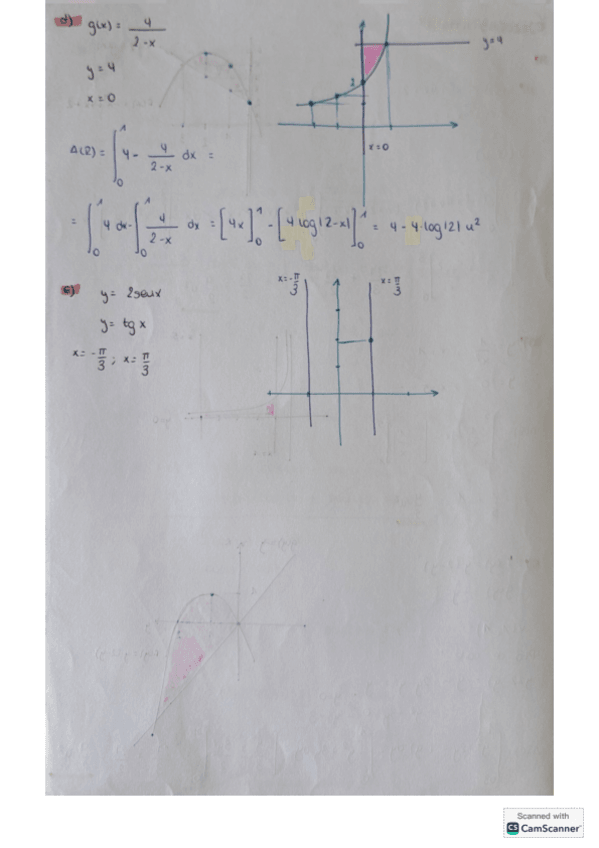 d) g(x) = 4 / 2-x
y = 4
x = 0
y=4
2
x=0
A(R) = ∫₀¹ 4 - 4/(2-x) dx =
= ∫₀¹ 4 dx - ∫₀¹ 4/(2-x) dx = [4x]₀¹ - [4 log|2-x|]₀¹ = 4 - 4·log|2| u²
e) y = 2senx
y = tg x
x = -π/3 ; x = π/3
x = -π/3
x = π/3
Scanned with
CS CamScanner